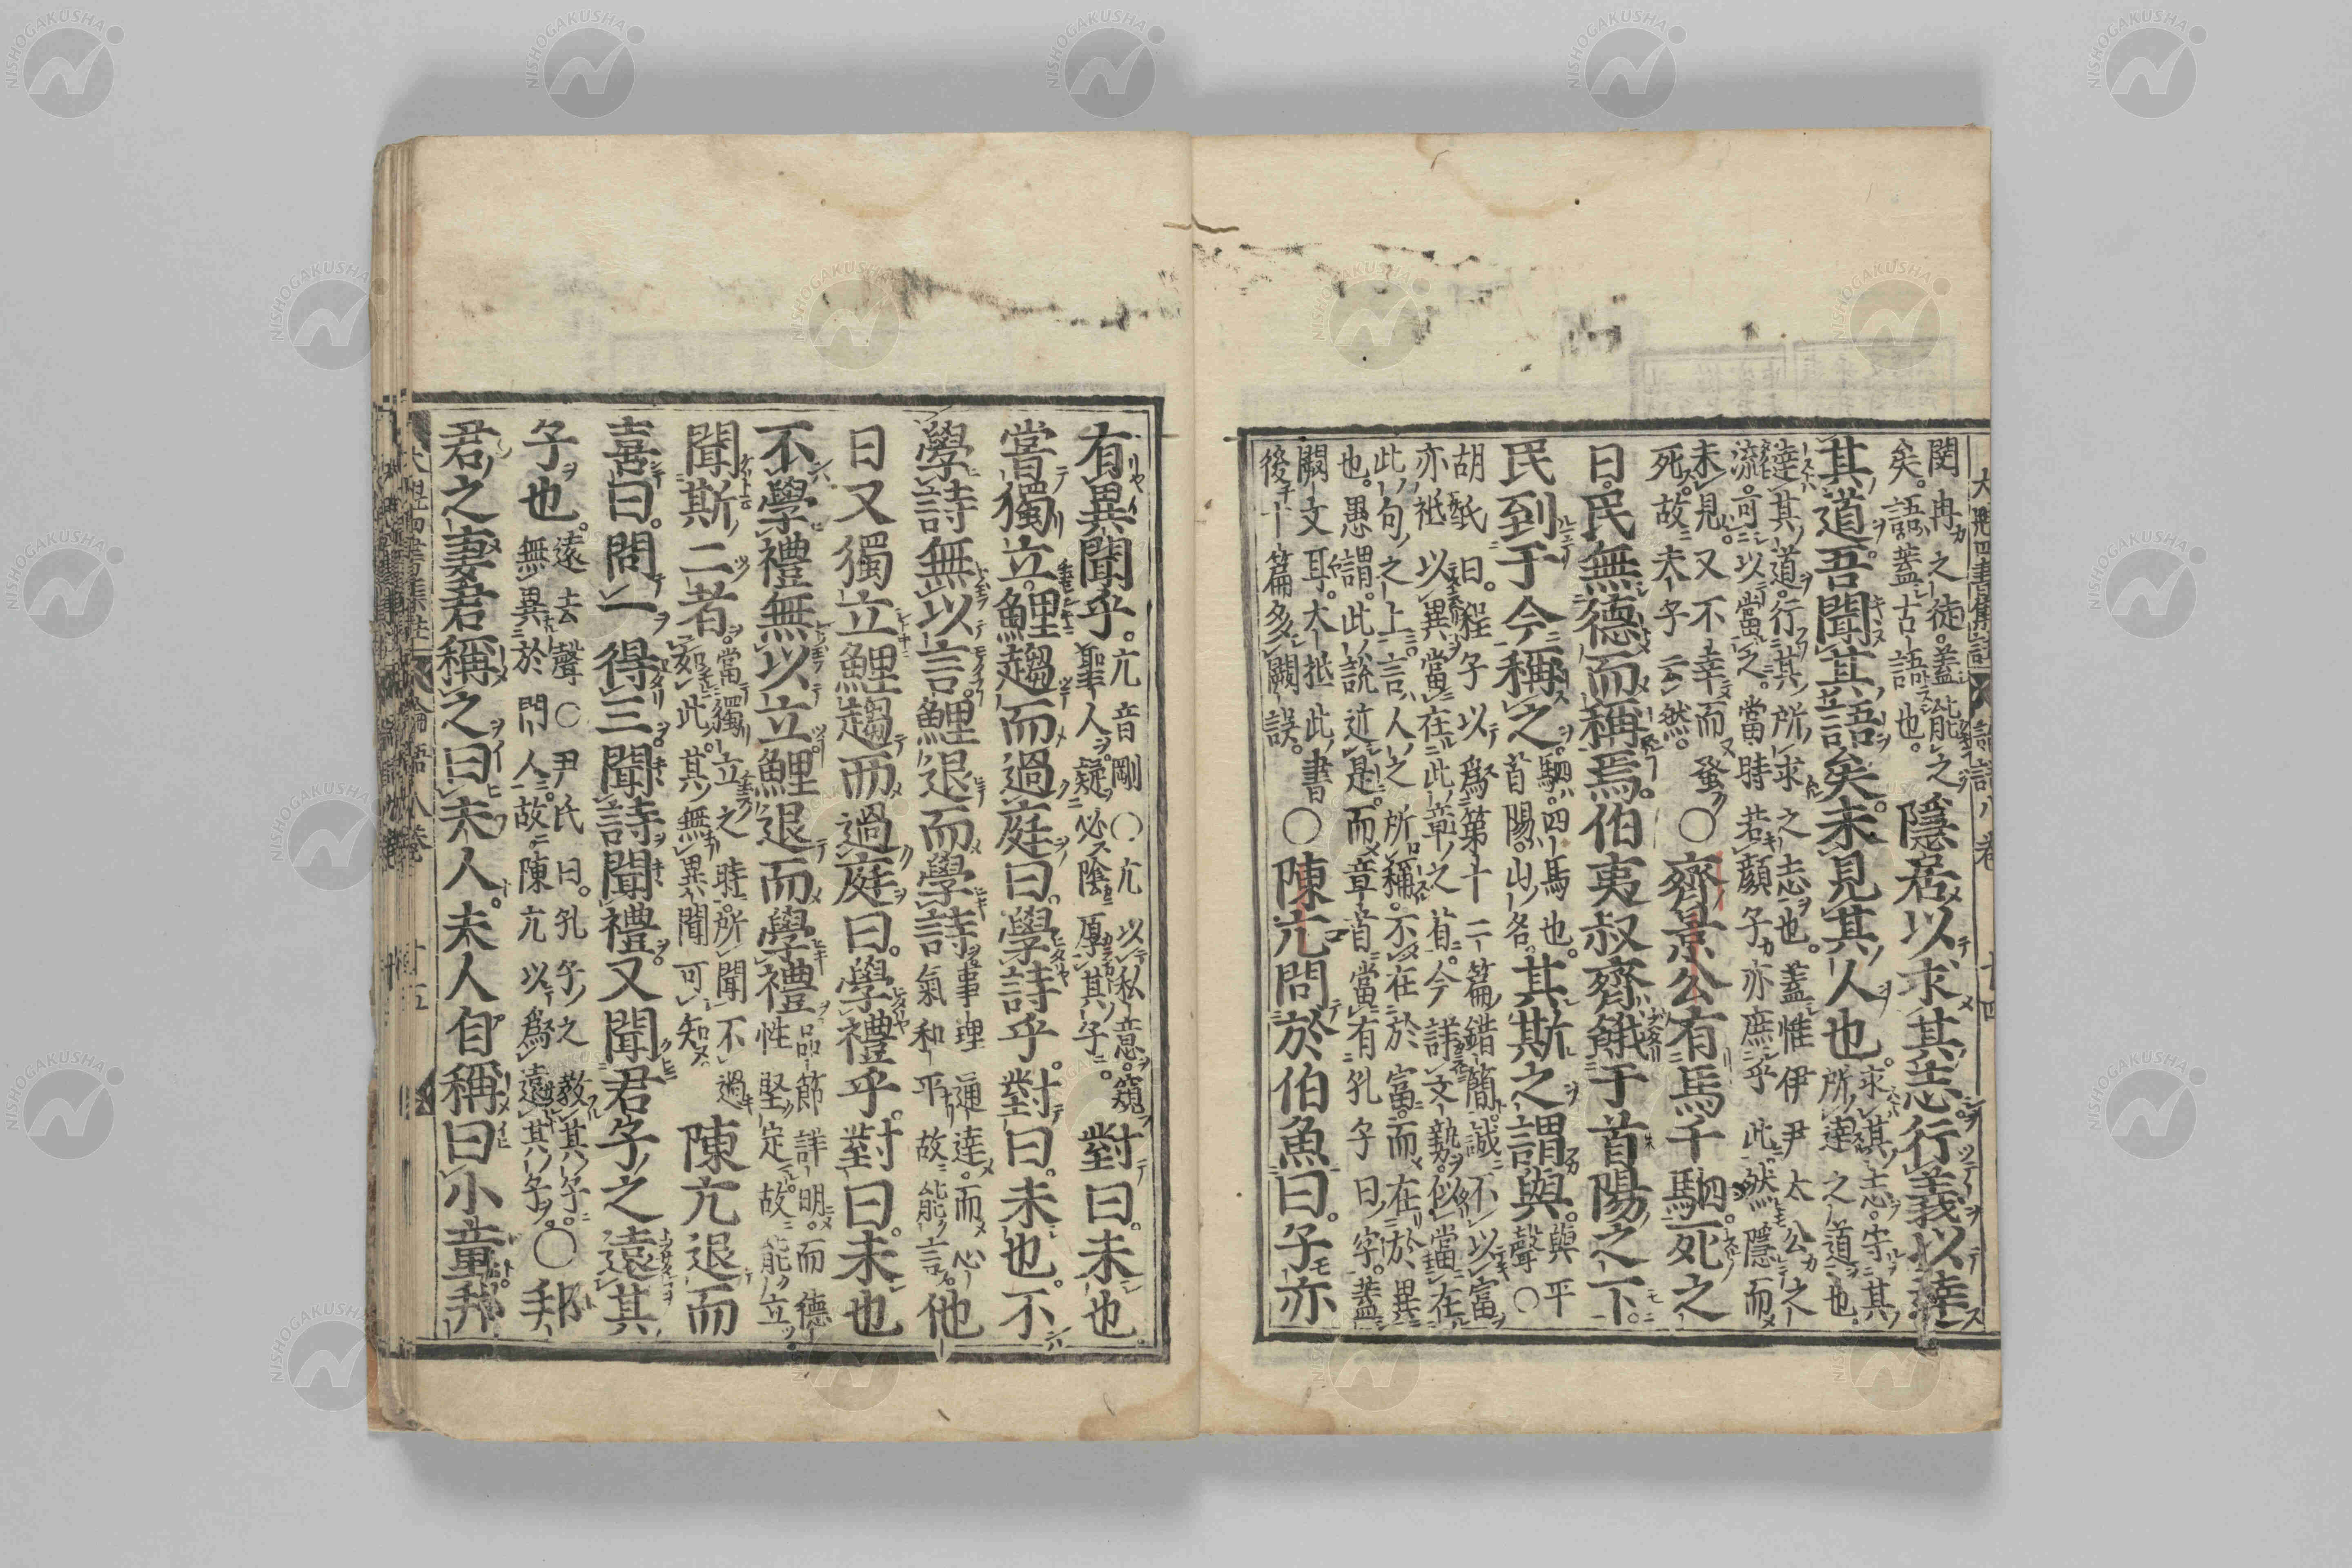 大魁四書集註 論語八卷 十四
閔冉之徒。蓋能之
矣。語蓋古語也。
隱居以求其志。行義以達
其道。吾聞其語矣。未見其人也。
求其志。守其
所達之道也。
達其道。行其所求之志也。蓋惟伊尹太公之
流。可以當之。當時若顏子亦庶乎此。然隱而
未見。又不幸而蚤
死。故夫子云然。
○齊景公有馬千駟。死之
日。民無德而稱焉。伯夷叔齊餓于首陽之下。
民到于今稱之。
駟。四馬也。
首陽。山名。
其斯之謂與。
與平
聲○
胡氏曰。程子以爲第十二篇錯簡。誠不以富
亦祗以異當在此章之首。今詳文勢。似當在
此句之上。言人之所稱。不在於富。而在於異
也。愚謂。此說近是。而章首當有孔子曰字。蓋
闕文耳。大抵此書
後十篇多闕誤。
○陳亢問於伯魚曰。子亦
有異聞乎。
亢音剛○亢以私意。窺
聖人疑必陰厚其子。
對曰。未也。
嘗獨立。鯉趨而過庭曰。學詩乎。對曰。未也。不
學詩無以言。鯉退而學詩
事理通達。而心
氣和平故能言。
他
日又獨立鯉趨而過庭曰。學禮乎。對曰。未也
不學禮無以立鯉退而學禮
品節詳明。而德
性堅定。故能立。
聞斯二者。
當獨立之時。所聞不過
如此。其無異聞可知
陳亢退而
喜曰。問一得三聞詩聞禮。又聞君子之遠其
子也。
遠去聲○尹氏曰。孔子之教其子。
無異於門人。故陳亢以爲遠其子。
○邦
君之妻君稱之曰夫人。夫人自稱曰小童。邦
大魁四書集註 論語八卷 十五